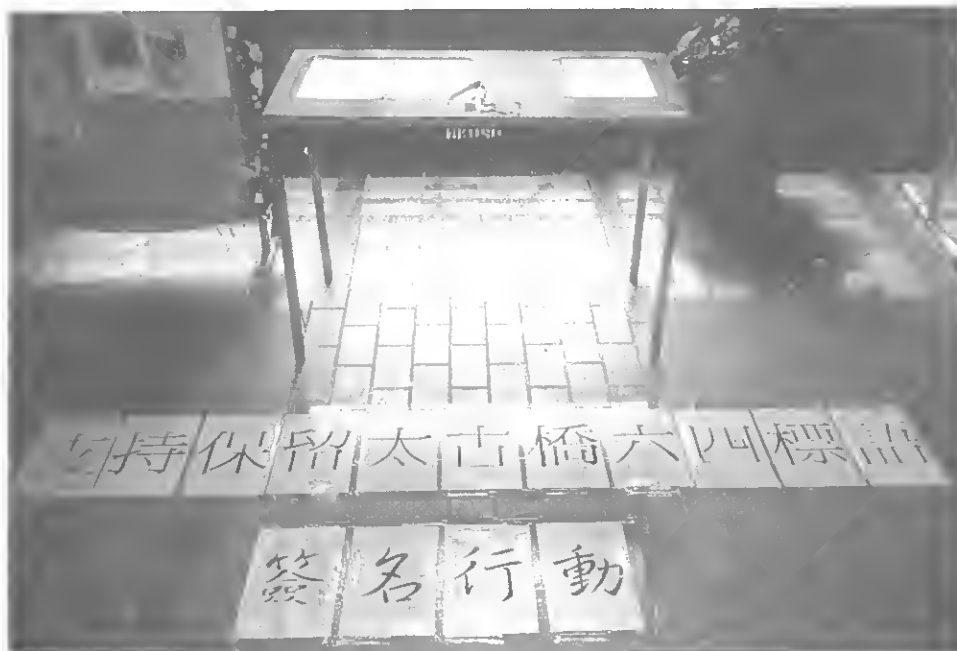 持保留太古橋六四標語
簽名行動